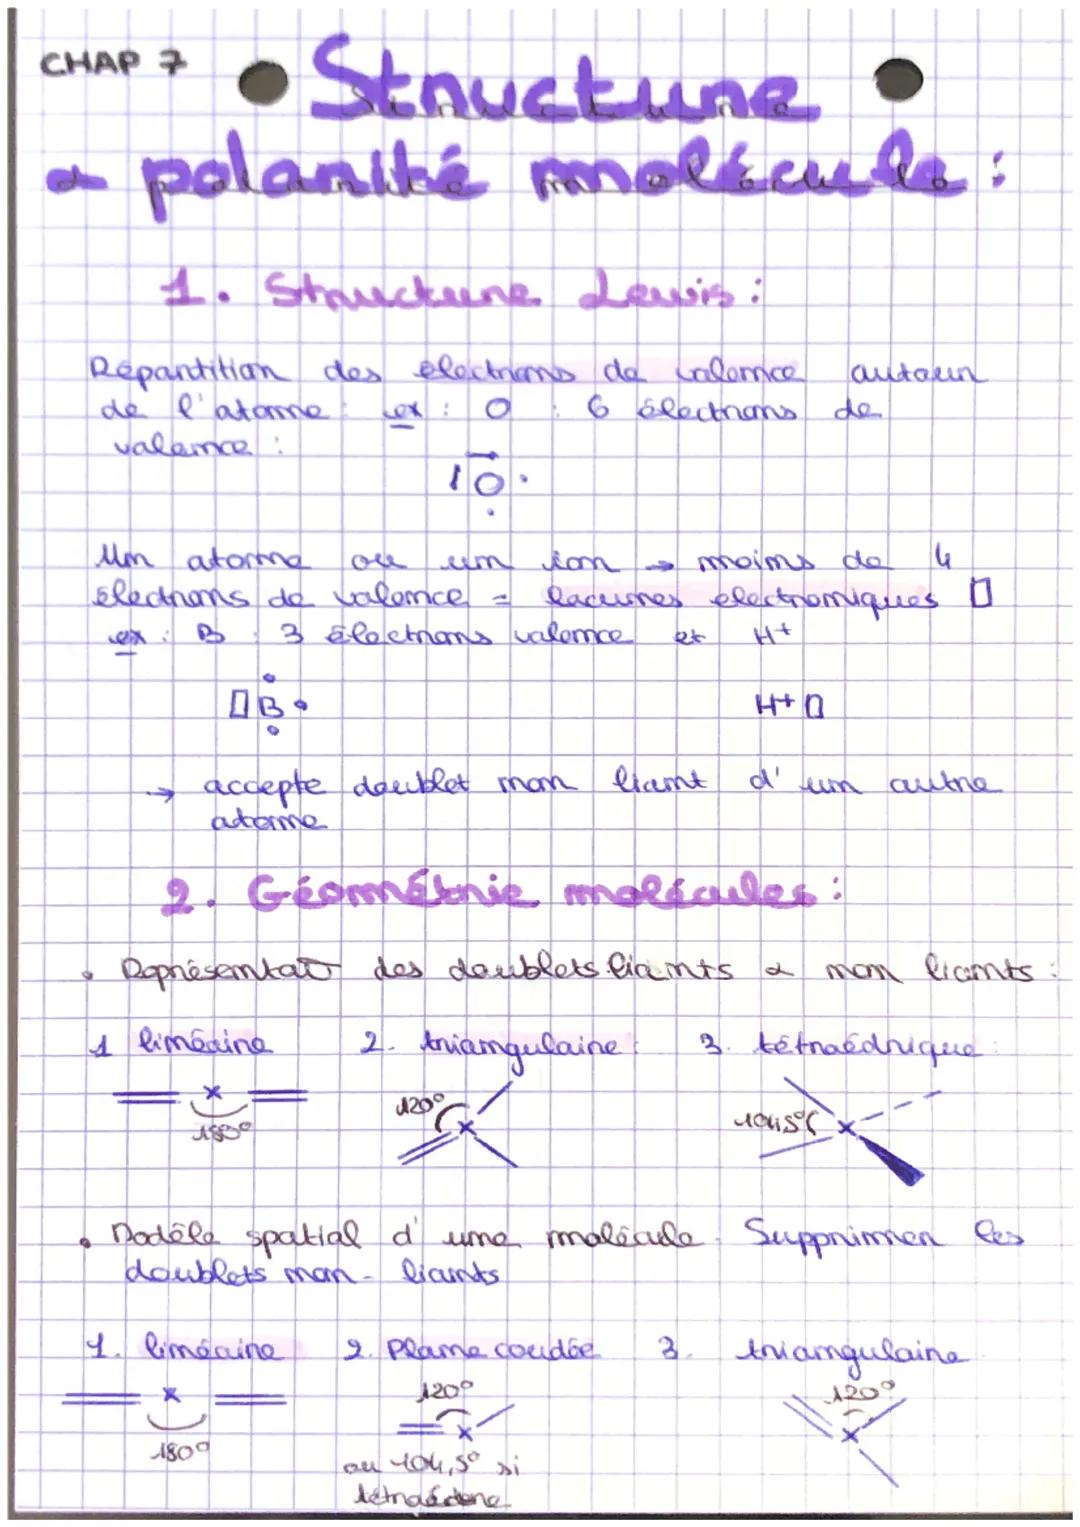 CHAP 7
• Structure •
& polarité molécule :
1. Structure Lewis :
Répartition des électrons de valence autour
de l'atome : ex : O : 6 électrons de
valence :
I O .
Un atome ou un ion → moins de 4
électrons de valence = lacunes electroniques ▯
ex : B : 3 électrons valence et H+
▯ B •
H+ ▯
→ accepte doublet non liant d'un autre
atome
2. Géométrie molécules :
• Représentat° des doublets liants & non liants :
1 linéaire 2. triangulaire : 3. tétraédrique :
180° 120° 104,5°
• Modèle spatial d'une molécule. Supprimer les
doublets non-liants
1. linéaire 2. Plane coudée 3. triangulaire
120° 120°
180°
ou 104,5° si
tétraèdre